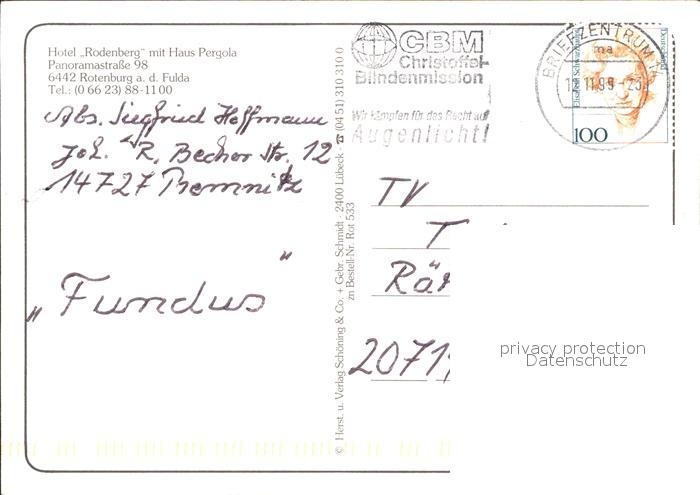 Hotel „Rodenberg" mit Haus Pergola
Panoramastraße 98
6442 Rotenburg a. d. Fulda
Tel.: (0 66 23) 88-11 00
Abs. Siegfried Hoffmann
Joh. R. Becher Str. 12
14727 Premnitz
„Fundus"
© Herst. u. Verlag Schöning & Co. + Gebr. Schmidt · 2400 Lübeck · ☎ (04 51) 310 310 0
zn Bestell-Nr. Rot 533
CBM
Christoffel-
Blindenmission
Wir kämpfen für das Recht auf
Augenlicht!
BRIEFZENTRUM
ma
Deutschland
100
TV
T
Rät
2071
privacy protection
Datenschutz